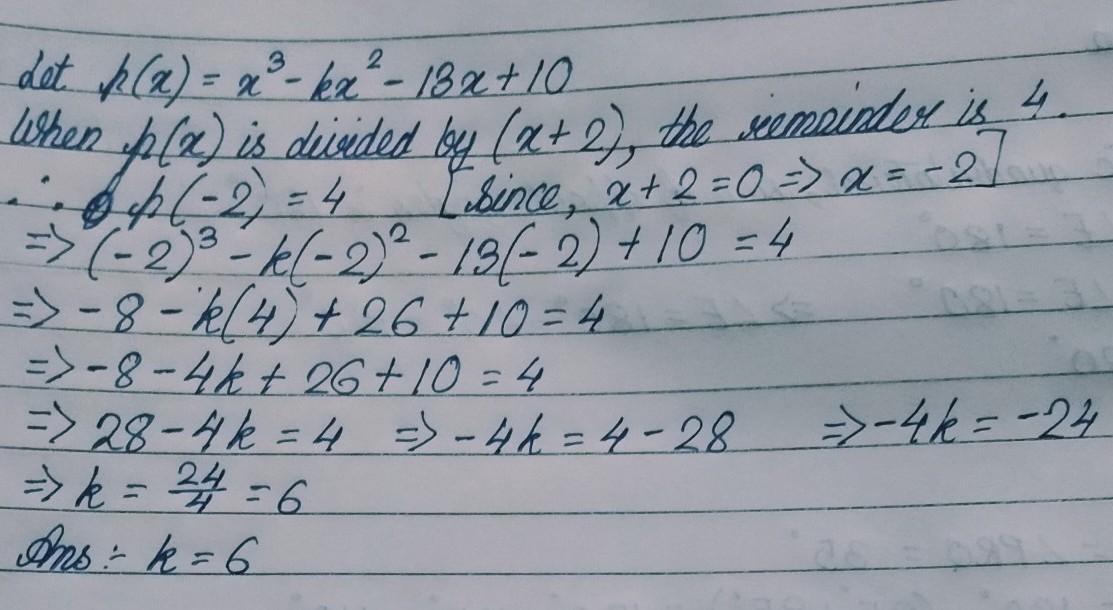 Let p(x) = x³ - kx² - 13x + 10
When p(x) is divided by (x+2), the remainder is 4.
∴ p(-2) = 4 [Since, x + 2 = 0 => x = -2]
=> (-2)³ - k(-2)² - 13(-2) + 10 = 4
=> -8 - k(4) + 26 + 10 = 4
=> -8 - 4k + 26 + 10 = 4
=> 28 - 4k = 4 => -4k = 4 - 28 => -4k = -24
=> k = 24/4 = 6
Ans :- k = 6